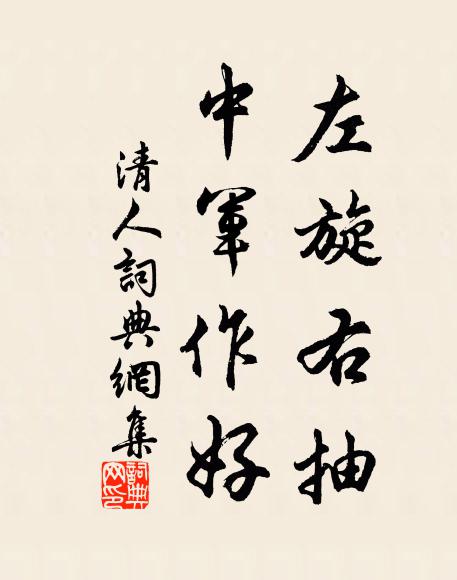 左旋右抽
中軍作好
清人詞典網集
詞典
网印